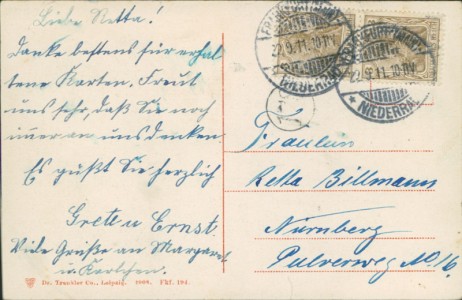 Liebe Retta!
Danke bestens für erhal
tene Karten. Freut
uns sehr, daß Sie noch
immer an uns denken.
Es grüßt Sie herzlich
Grete u Ernst.
Viele Grüße an Margaret
u. Karlchen.
FRANKFURT (MAIN)
22.9.11. 10-11V.
* NIEDERRAD
FRANKFURT (MAIN)
22.9.11. 10-11V.
* NIEDERRAD
Fräulein
Retta Billmann
Nürnberg
Pulverweg No 16.
Dr. Trenkler Co., Leipzig. 1908. Fkf. 194.